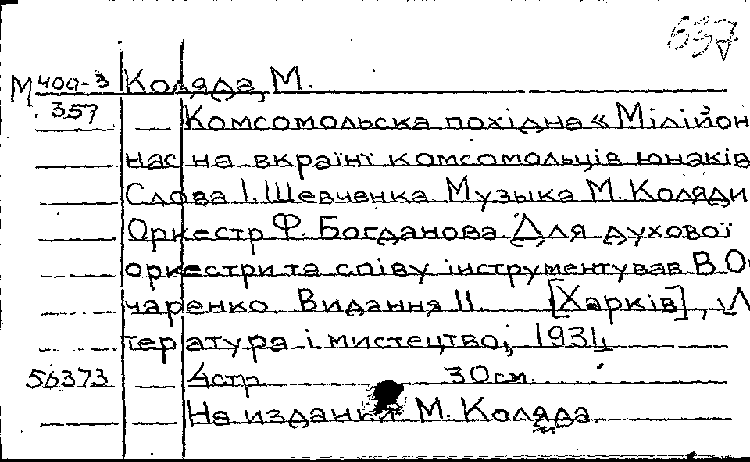 637
М 400-3 Коляда, М.
357 Комсомольска похідна «Мілійон
нас на вкраїні комсомольців юнаків
Слова І. Шевченка Музыка М. Коляди
Оркестр Ф. Богданова Для духової
оркестри та співу інструментував В. О
чаренко Видання ІІ [Харків], Л
тература і мистецтво, 1934
56373 4стр 30см.
На издании М. Коляда